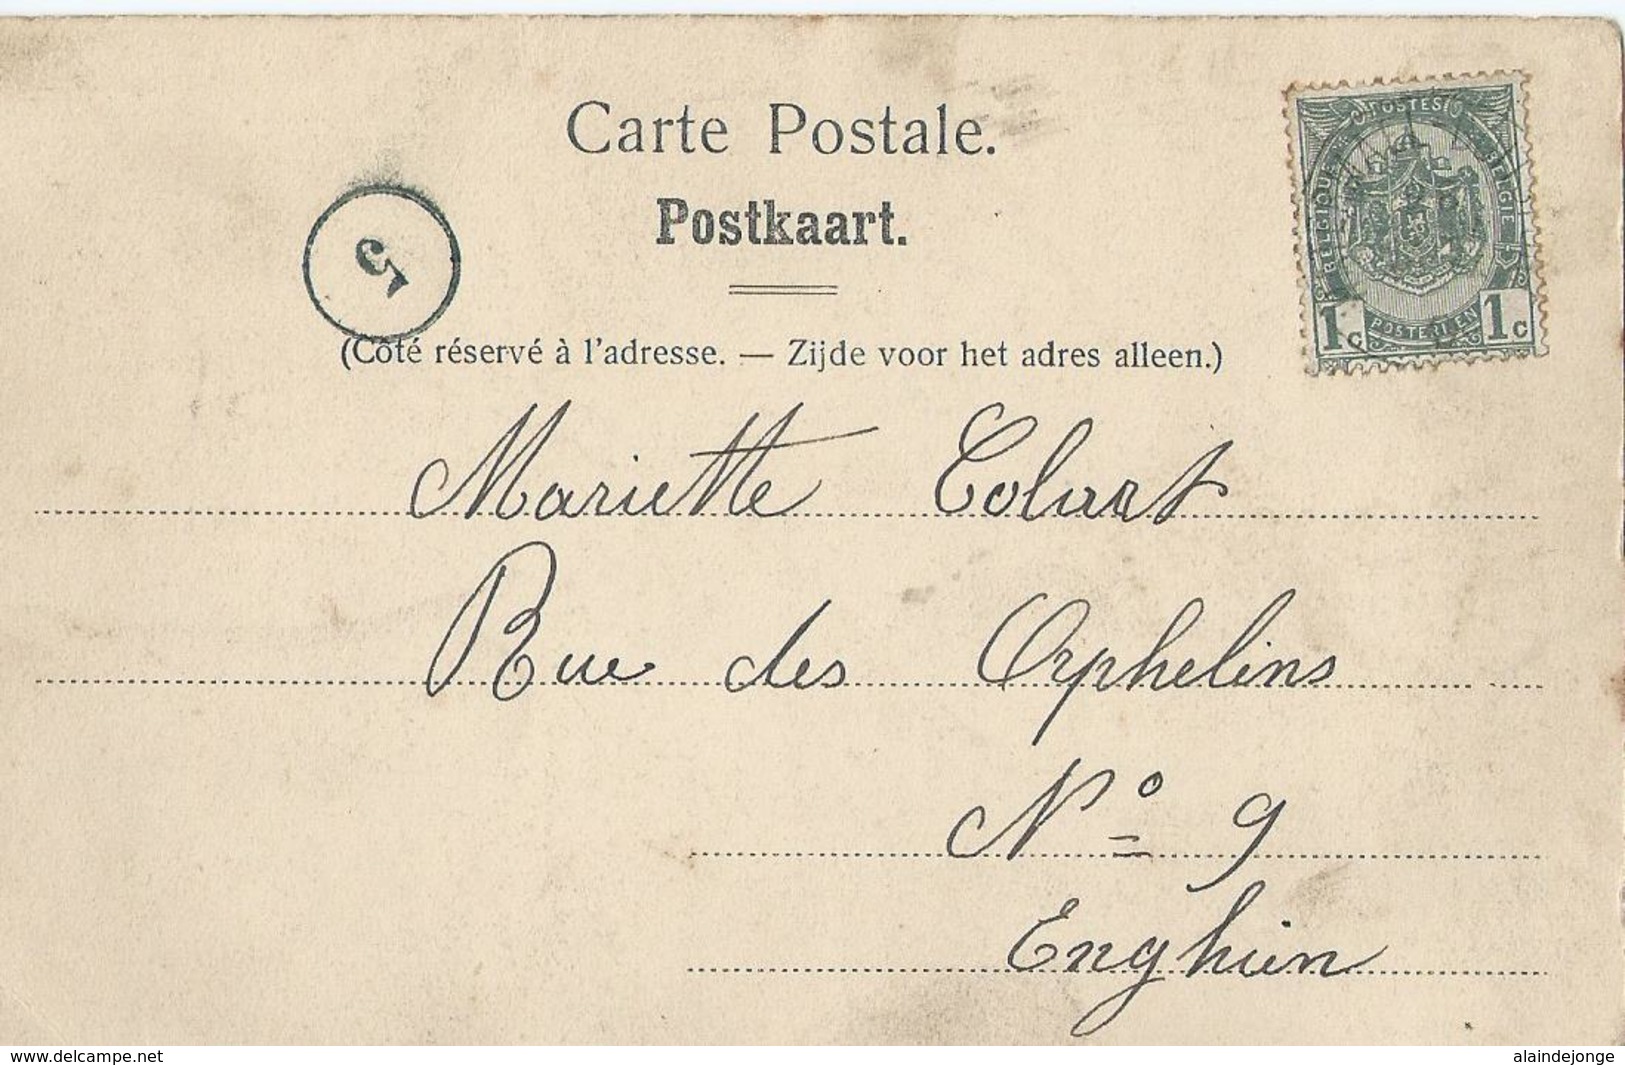 Carte Postale.
Postkaart.
5
(Côté réservé à l'adresse. — Zijde voor het adres alleen.)
POSTES
BELGIQUE
BELGIE
POSTERIJEN
1c 1c
Mariette Colart
Rue des Orphelins
Nº 9
Enghien
www.delcampe.net
alaindejonge